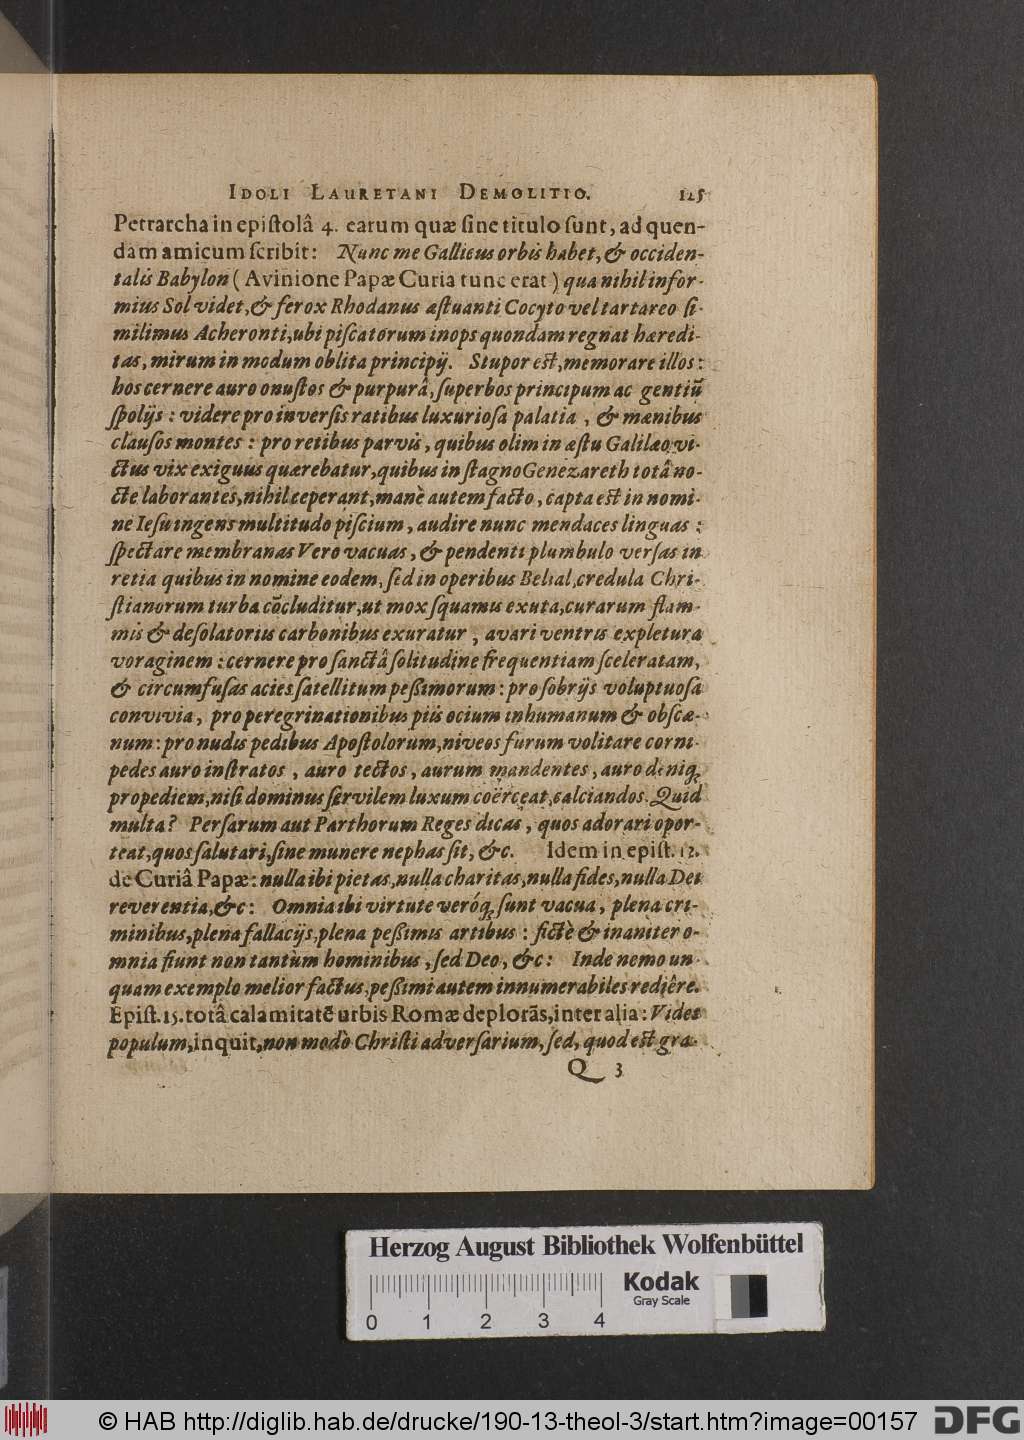 IDOLI LAURETANI DEMOLITIO. 125
Petrarcha in epiſtolâ 4. earum quæ ſine titulo ſunt, ad quen-
dam amicum ſcribit: Nunc me Gallicus orbis habet, & occiden-
talis Babylon (Avinione Papæ Curia tunc erat) qua nihil infor-
mius Sol videt, & ferox Rhodanus æſtuanti Cocyto vel tartareo ſi-
milimus Acheronti, ubi piſcatorum inops quondam regnat hæredi-
tas, mirum in modum oblita principij. Stupor eſt, memorare illos:
hos cernere auro onuſtos & purpurâ, ſuperbos principum ac gentiũ
ſpolijs: videre pro inverſis ratibus luxurioſa palatia, & mœnibus
clauſos montes: pro retibus parvis, quibus olim in æſtu Galilæo vi-
ctus vix exiguus quærebatur, quibus in ſtagno Genezareth totâ no-
cte laborantes, nihil ceperant, manè autem facto, capta eſt in nomi-
ne Ieſu ingens multitudo piſcium, audire nunc mendaces linguas:
ſpectare membranas Vero vacuas, & pendenti plumbulo verſas in
retia quibus in nomine eodem, ſed in operibus Belial, credula Chri-
ſtianorum turba cõcluditur, ut mox ſquamis exuta, curarum flam-
mis & deſolatorius carbonibus exuratur, avari ventris expletura
voraginem: cernere pro ſanctâ ſolitudine frequentiam ſceleratam,
& circumfuſas acies ſatellitum peßimorum: pro ſobrijs voluptuoſa
convivia, pro peregrinationibus piis ocium inhumanum & obſcæ-
num: pro nudis pedibus Apoſtolorum, niveos furum volitare corni-
pedes auro inſtratos, auro tectos, aurum mandentes, auro deniq;
propediem, niſi dominus ſervilem luxum coërceat, calciandos. Quid
multa? Perſarum aut Parthorum Reges dicas, quos adorari opor-
teat, quos ſalutari, ſine munere nephas ſit, &c. Idem in epiſt. 12.
de Curiâ Papæ: nulla ibi pietas, nulla charitas, nulla fides, nulla Dei
reverentia, &c: Omnia ibi virtute veróq; ſunt vacua, plena cri-
minibus, plena fallacijs, plena peßimis artibus: fictè & inaniter o-
mnia fiunt non tantùm hominibus, ſed Deo, &c: Inde nemo un-
quam exemplo melior factus, peßimi autem innumerabiles rediêre.
Epiſt. 15. totâ calamitatẽ urbis Romæ deplorãs, inter alia: Vides
populum, inquit, non modò Chriſti adverſarium, ſed, quod eſt gra-
Q 3
Herzog August Bibliothek Wolfenbüttel
Kodak
Gray Scale
0 1 2 3 4
© HAB http://diglib.hab.de/drucke/190-13-theol-3/start.htm?image=00157 DFG